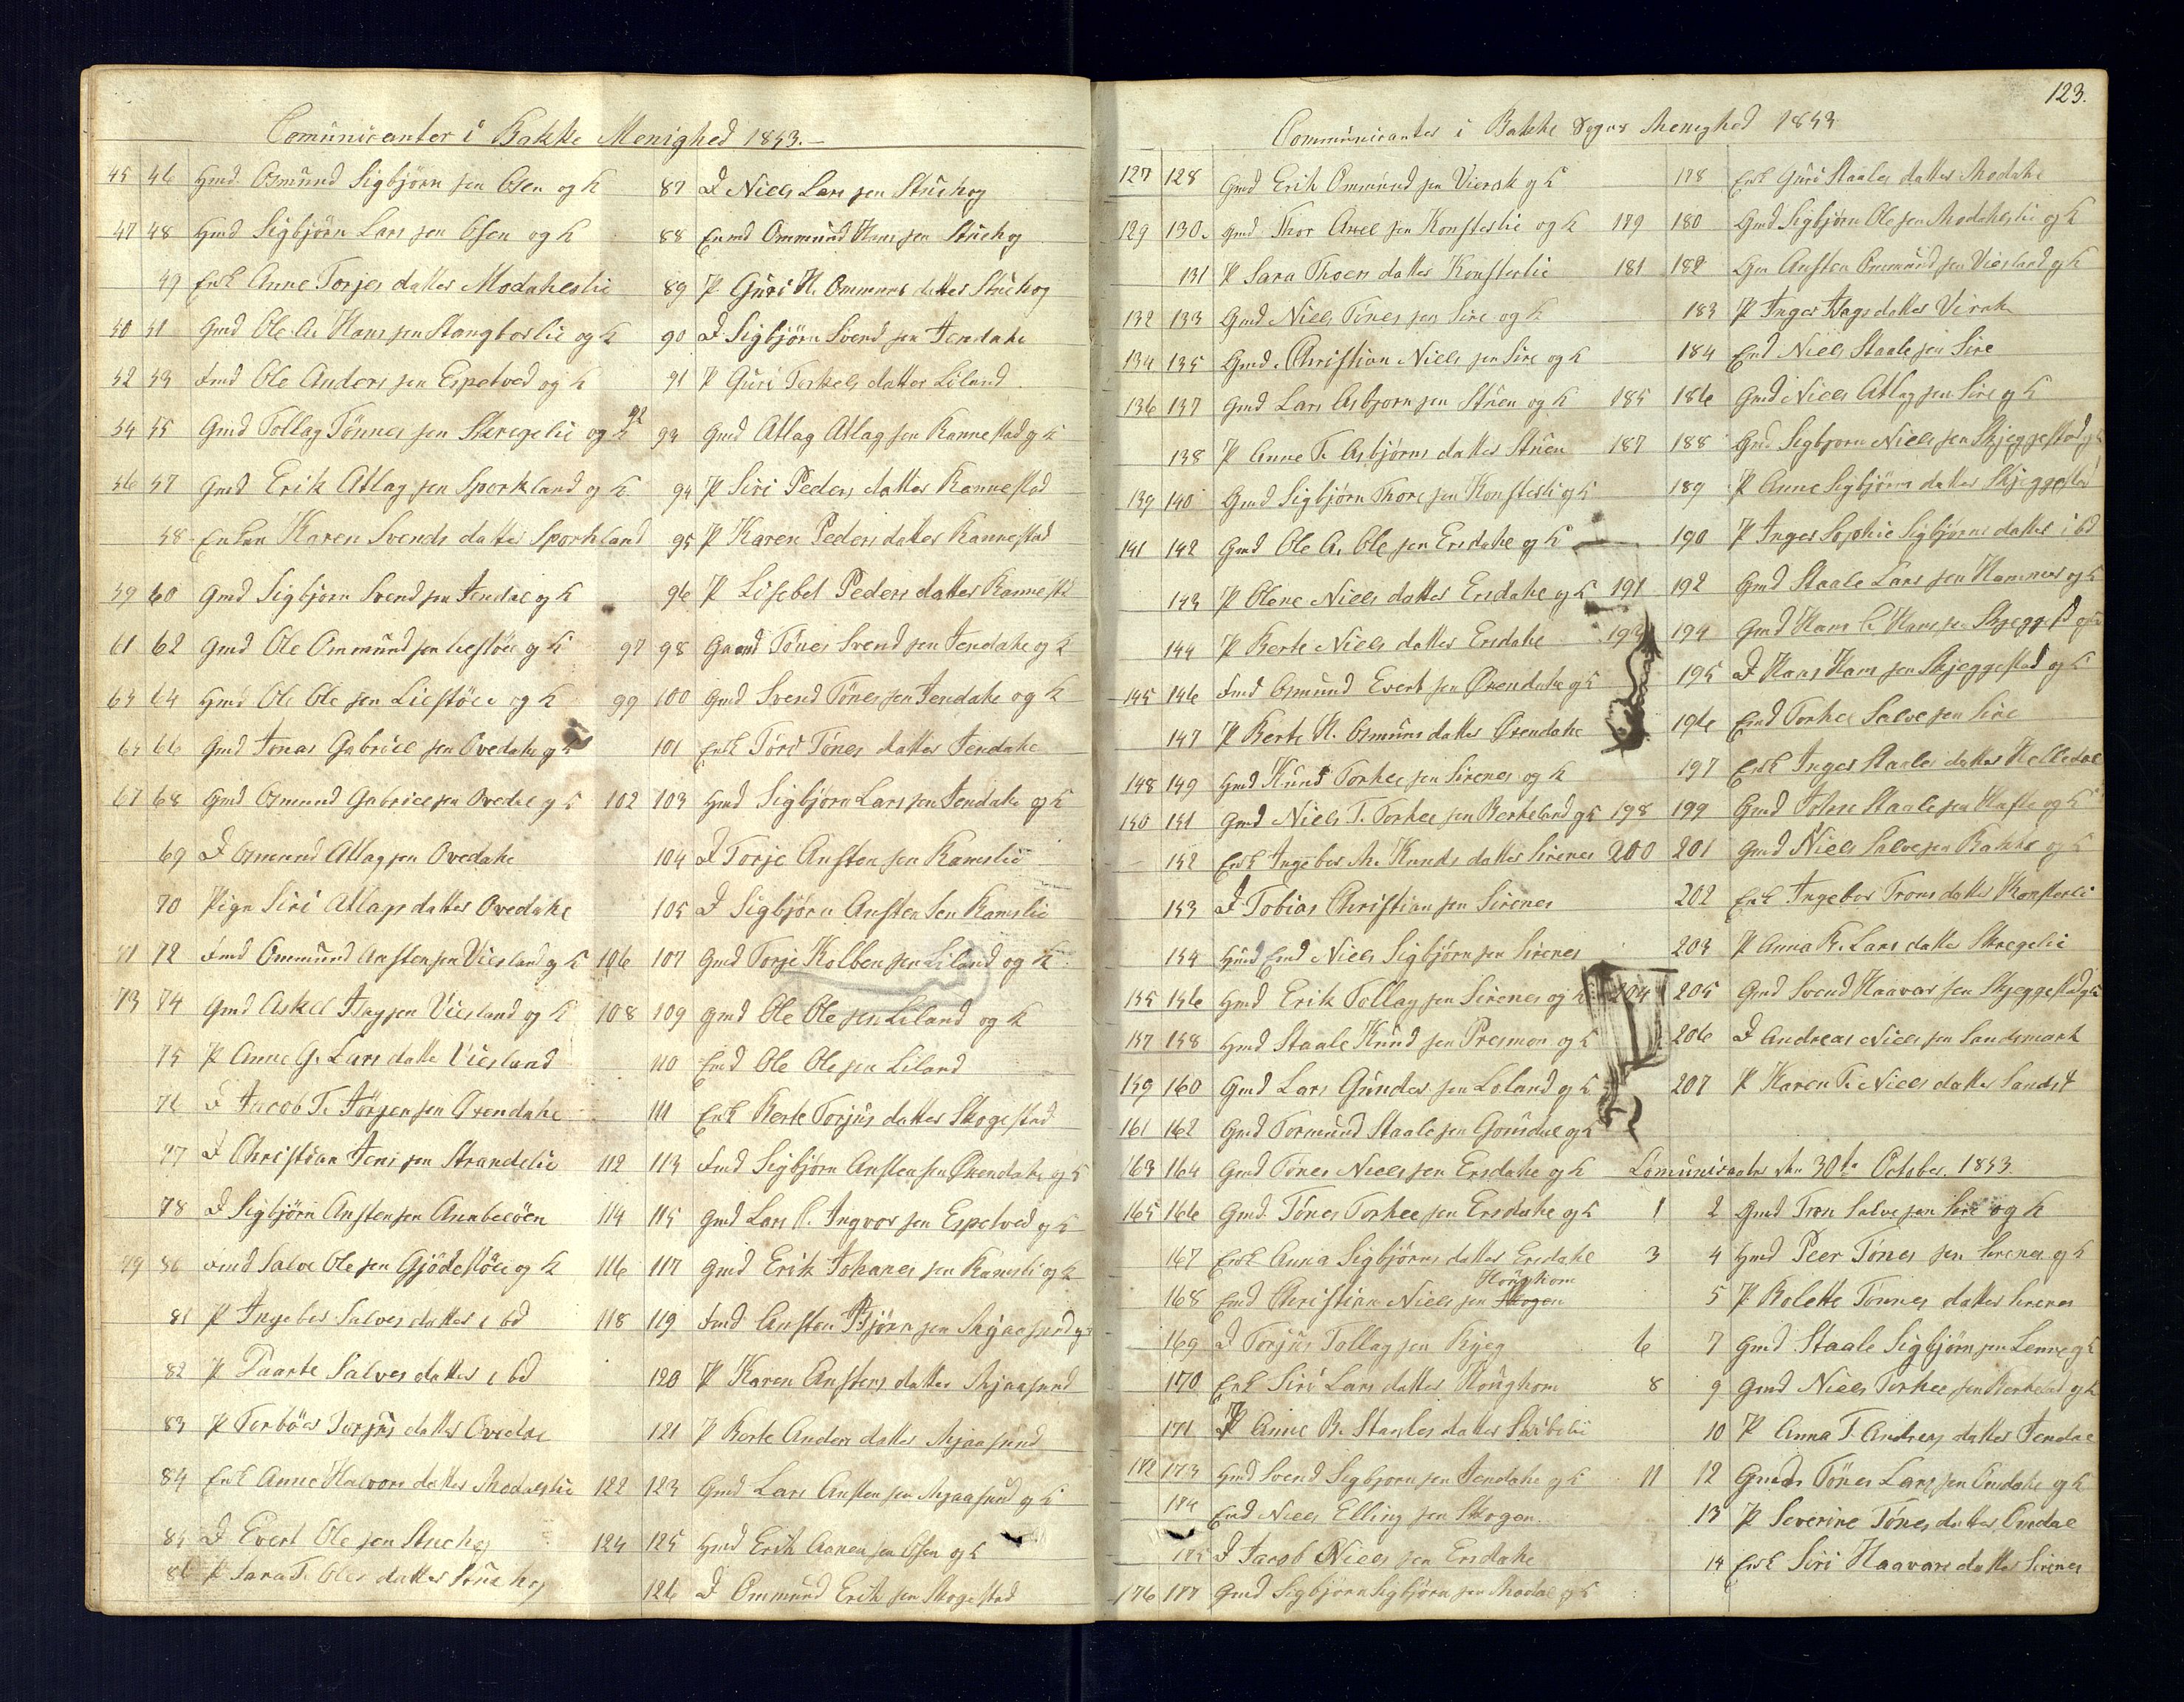 Comunicanter i Bakke Menighed 1853.
45 46 Hmd Osmund Sigbjörn sen Osen og K
47 48 Hmd Sigbjörn Lars sen Osen og K
49 Enk Anne Torjes datter Modaheslie
50 51 Gmd Ole A. Hans sen Stangborlie og K
52 53 Fmd Ole Anders sen Espetved og K
54 55 Gmd Tollag Tönnes sen Skregelie og K
56 57 Gmd Erik Atlag sen Sporkland og K
58 Enken Karen Svends datter Sporkland
59 60 Gmd Sigbjörn Svend sen Jendal og K
61 62 Gmd Ole Ommund sen Liestöle og K
63 64 Hmd Ole Ole sen Liestöle og K
65 66 Gmd Jonas Gabriel sen Ovedahe og K
67 68 Gmd Osmund Gabriel sen Ovedal og K
69 D Osmund Atlag sen Ovedahe
70 Pige Siri Atlags datter Ovedahe
71 72 Fmd Ommund Ansten sen Viesland og K
73 74 Gmd Askel Aag sen Viesland og K
75 P Anne G. Lars datte Viesland
76 D Jacob T. Jörgen sen Oxendahe
77 D Christian Jens sen Strandelie
78 D Sigbjörn Ansten sen Aunbelöen
79 80 Fmd Salve Ole sen Gjödestöle og K
81 P Ingebor Salves datter i bd
82 P Paarte Salves datter i bd
83 P Torbör Torjus datter Ovedal
84 Enk Anne Halvors datter Modaeslie
85 D Evert Ole sen Stuehog
86 P Sara T. Oles datter Stuehog
87 D Niels Lars sen Stuehog
88 Enmd Ommund Hans sen Stuehog
89 P Guri H. Ommunds datter Stuehog
90 D Sigbjörn Svend sen Jendahe
91 P Guri Torkels datter Liland
92 93 Gmd Atlag Atlag sen Rannestad og K
94 P Siri Peders datter Rannestad
95 P Karen Peders datter Rannestad
96 P Lisebet Peders datter Rannestd
97 98 Gamd Tönes Svend sen Jendahe og K
99 100 Gmd Svend Tönes sen Jendahe og K
101 Enk Töri Tönes datter Jendahe
102 103 Hmd Sigbjörn Lars sen Jendahe og K
104 D Torje Ansten sen Ramslie
105 D Sigbjörn Ansten Sen Ramslie
106 107 Gmd Torje Kolben sen Liland og K
108 109 Gmd Ole Ole sen Liland og K
110 Emd Ole Ole sen Liland
111 Enk Berte Torjus datter Skogestad
112 113 Fmd Sigbjörn Ansten sen Oxendahe og K
114 115 Gmd Lars P. Ingvor sen Espetved og K
116 117 Gmd Erik Johanes sen Ramsli og K
118 119 Fmd Ansten Bjørn sen Mjaasund og K
120 P Karen Anstens datter Mjaasund
121 P Berte Anders datter Mjaasund
122 123 Gmd Lars Ansten sen Mjaasund og K
124 125 Hmd Erik Aanen sen Osen og K
126 D Ommund Erik sen Skogestad
123.
Communicanter i Bakke Sogns Menighed 1853
127 128 Gmd Erik Ommund sen Virak og K
129 130. Gmd Thor Axel sen Konsterlie og K
131 P Sara Thoers datter Konsterlie
132 133 Gmd Niels Tönes sen Sire og K
134 135 Gmd Christian Niels sen Sire og K
136 137 Gmd Lars Asbjorn sen Stuen og K
138 P Anne T. Asbjörns datter Stuen
139 140 Gmd Sigbjörn Thore sen Konsterli og K
141 142 Gmd Ole A. Ole sen Ersdahe og K
143 P Olene Niels datter Ersdahe og K
144 P Berte Niels datter Ersdahe
145 146 Fmd Osmund Evert sen Oxendahe og K
147 P Berte H. Osmunds datter Oxendahe
148 149 Hmd Knud Torkee sen Sirenes og K
150 151 Gmd Niels T. Torkee sen Berkeland og K
152 Enk Ingebor M. Knuds datter Sirenes
153 D Tobias Christian sen Sirenes
154 Hmd Emd Niels Sigbjörn sen Sirenes
155 156 Hmd Erik Tollag sen Sirenes og K
157 158 Hmd Staale Knud sen Presmon og K
159 160 Gmd Lars Gunder sen Loland og K
161 162 Gmd Tormund Staale sen Gousdal og K
163 164 Gmd Tönes Niels sen Ersdahe og K
165 166 Gmd. Tönes Torkee sen Ersdahe og K
167 Enk Anna Sigbjörns datter Ersdahe
Houghom
168 Emd Christian Niels sen Skogen
169 D Torjus Tollag sen Ryeg
170 Enk Siri Lars datter Houghom
171 P Anne B. Staales datter Skibelie
172 173 Hmd Svend Sigbjorn sen Jendahe og K
174 Emd Niels Elling sen Skogen
175 D Jacob Niels sen Ersdahe
176 177 Gmd Sigbjörn Sigbjörn sen Modal og K
178 Enk Guri Staales datter Modahe
179 180 Gmd Sigbjørn Ole sen Modaheslie og K
181 182 Gm Ansten Ommund sen Viesland og K
183 P Inger Aags datter Virak
184 Emd Niels Staale sen Sire
185 186 Gmd Niels Atlag sen Sire og K
187 188 Gmd Sigbjorn Niels sen Skjeggestad og K
189 P Anne Sigbjörns datter Skjeggestad
190 P Inger Sophie Sigbjörns datter i bd
191 192 Gmd Staale Lars sen Hammer og K
193 194 Gmd Hans C Hans sen Skjeggest og K
195 D Hans Hans sen Skjeggestad og K
196 Emd Torkel Salve sen Sire
197 Enk Inger Staales datter Helledal
198 199 Gmd Tohre Staale sen Hafte og K
200 201 Gmd Niels Salve sen Bakke og K
202 Enk Ingebor Trons datter Konsterli
203 P Anna K. Lars datter Skregelie
204 205 Gmd Svend Haavar sen Skjeggestad og K
206 D Andreas Niels sen Landsmark
207 P Karen T. Niels datter Landst
Comunicanter den 30te October. 1853.
1 2 Gmd Tron Salve sen Sire og K
3 4 Hmd Peer Tönes sen Sirenes og K
5 P Rolette Tönnes datter Sirenes
6 7 Gmd Staale Sigbjörn sen Lenne og K
8 9 Gmd Niels Torkee sen Berkeland og K
10 P Anna T. Andreas datter Jendal
11 12 Gmd Tönes Lars sen Omdahe og K
13 P Severine Tönes datter Omdal
14 Enk Siri Haavars datter Sirenes